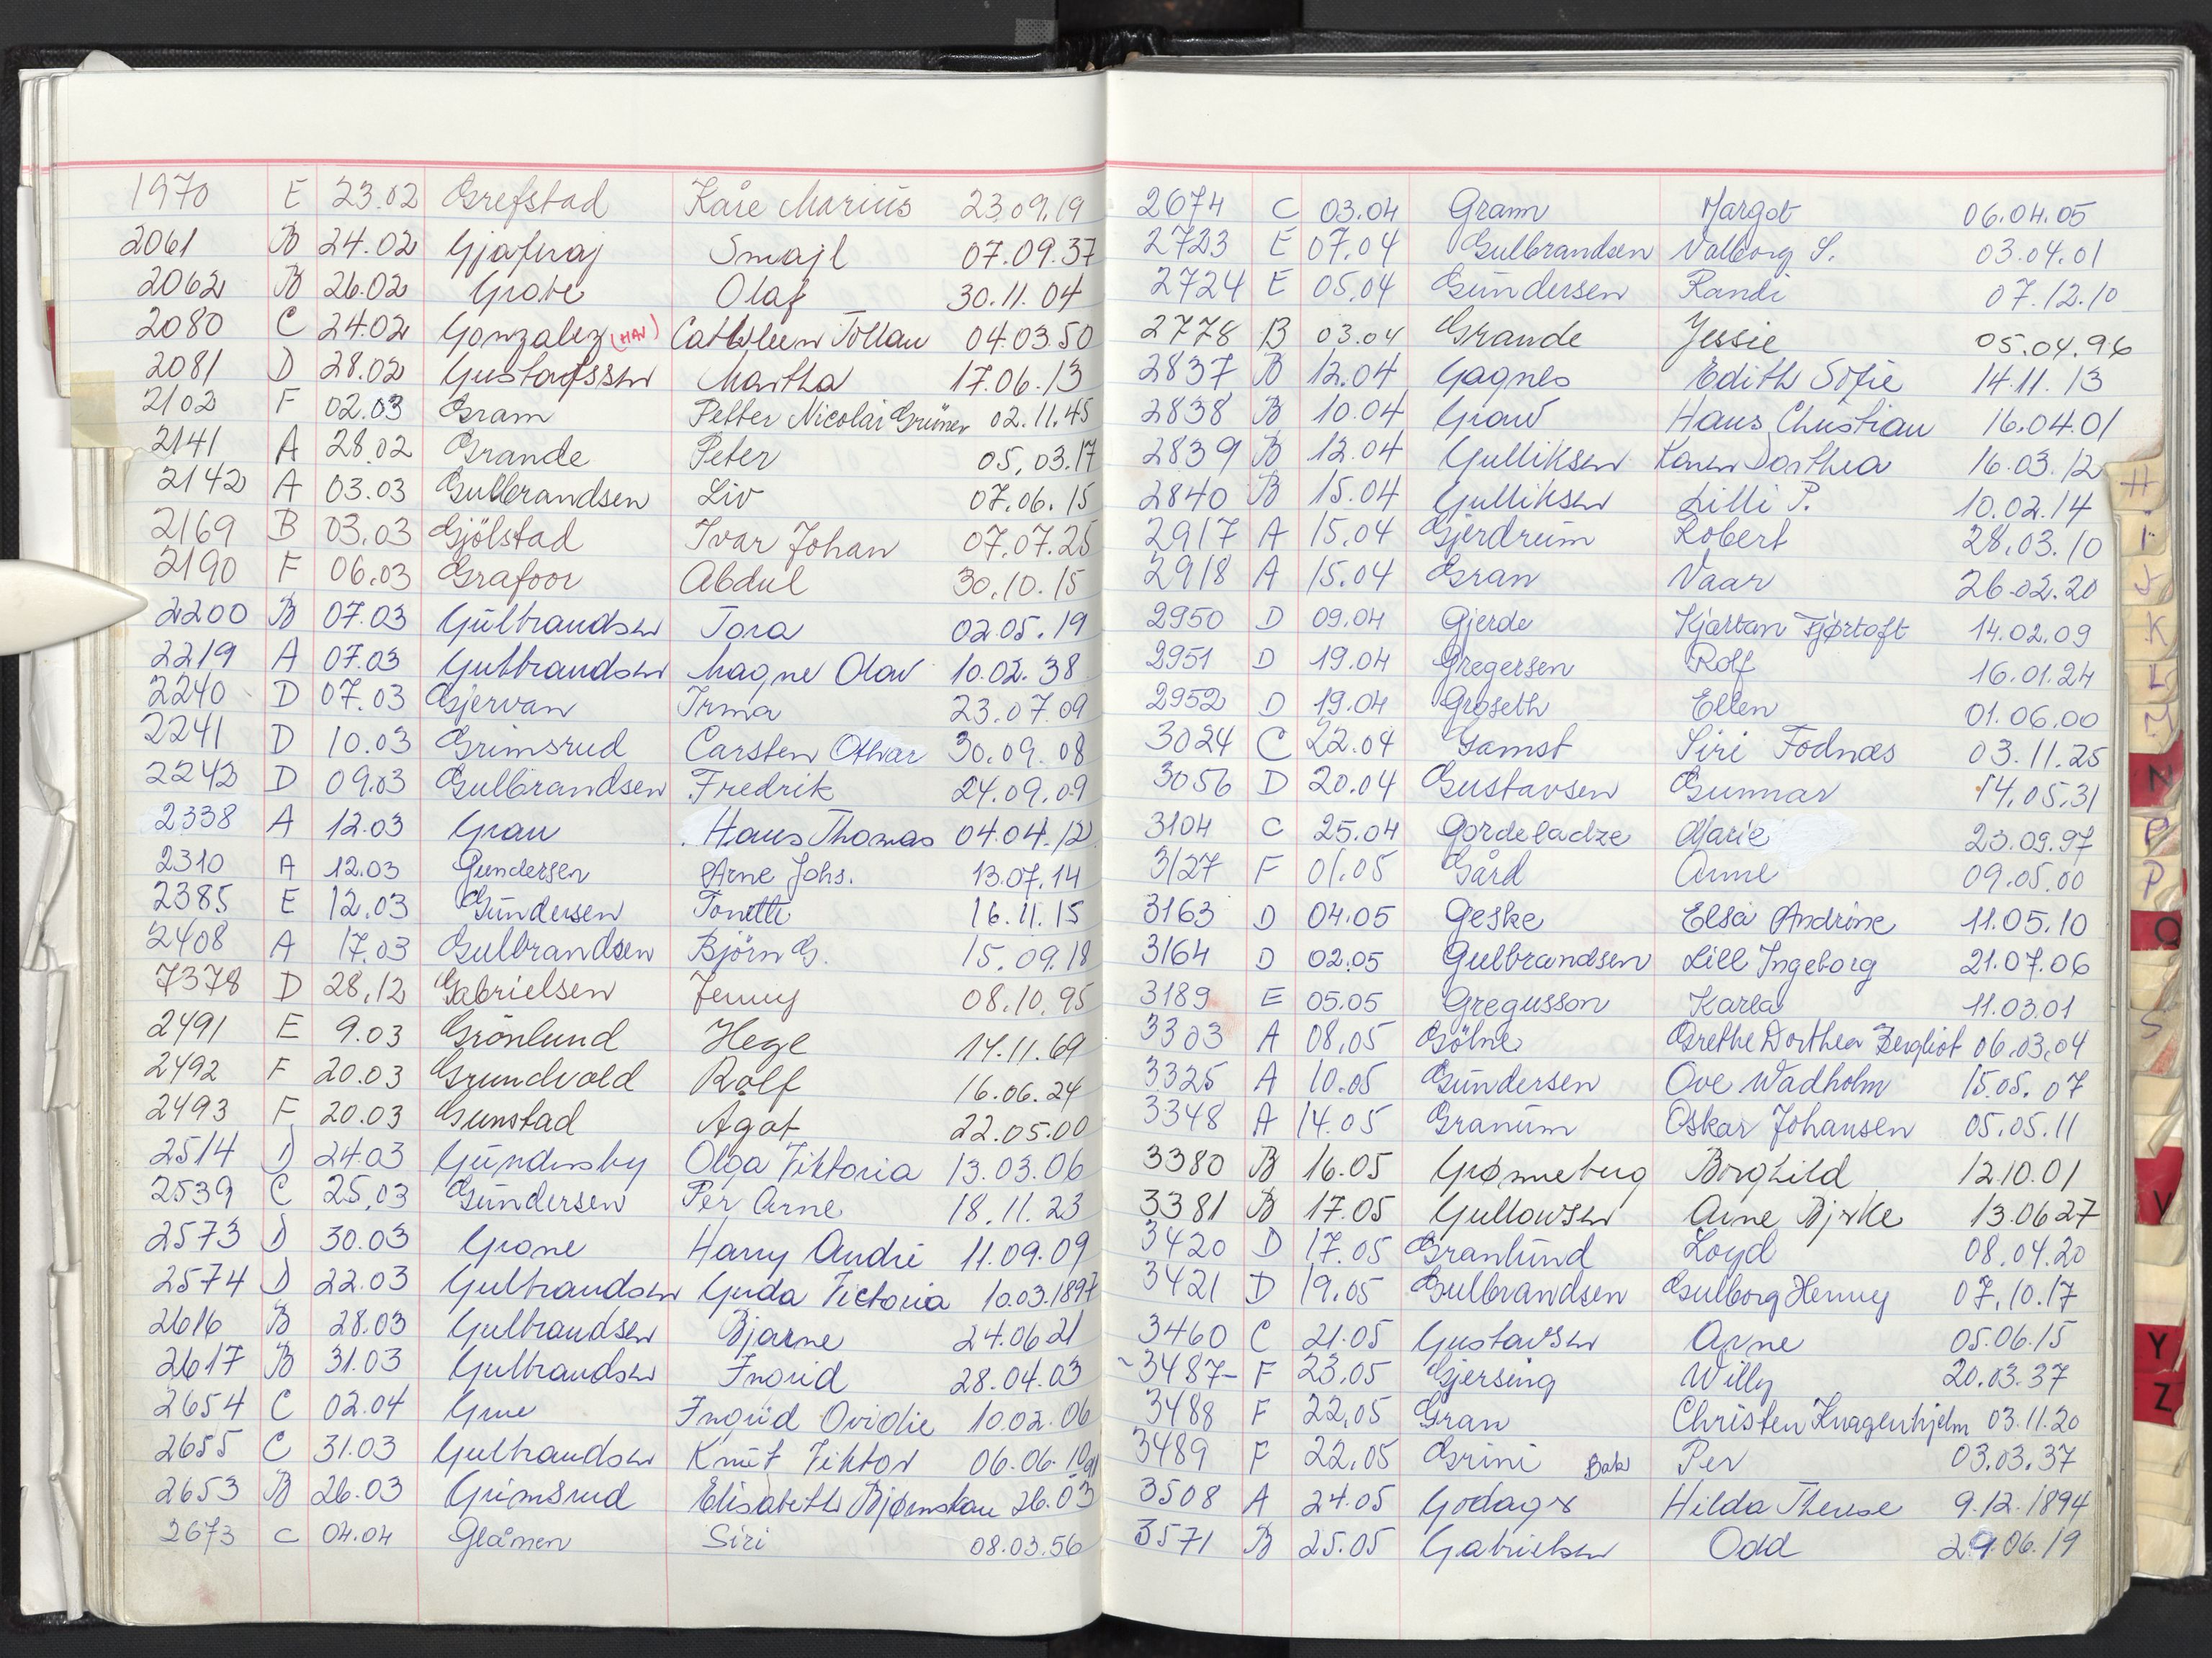 1970 E 23.02 Grefstad Kåre Marius 23.09.19
2061 B 24.02 Gjafinaj Smajl 07.09.37
2062 B 26.02 Grabe Olaf 30.11.04
2080 C 24.02 Gonzalez (HAV) Cathleen Tollau 04.03.50
2081 D 28.02 Gustavssen Martha 17.06.13
2102 F 02.03 Gram Petter Nicolai Grüner 02.11.45
2141 A 28.02 Grande Peter 05.03.17
2142 A 03.03 Gulbrandsen Liv 07.06.15
2169 B 03.03 Gjölstad Ivar Johan 07.07.25
2190 F 06.03 Grafoor Abdul 30.10.15
2200 B 07.03 Gulbrandsen Tora 02.05.19
2219 A 07.03 Gulbrandsen Magne Olav 10.02.38
2240 D 07.03 Gjervan Irma 23.07.09
2241 D 10.03 Grimsrud Carsten Othar 30.09.08
2242 D 09.03 Gulbrandsen Fredrik 24.09.09
2338 A 12.03 Grau Hans Thomas 04.04.12
2310 A 12.03 Gundersen Arne Johs. 13.07.14
2385 E 12.03 Gundersen Tonette 16.11.15
2408 A 17.03 Gulbrandsen Björn G. 15.09.18
7378 D 28.12 Gabrielsen Jenny 08.10.95
2491 E 9.03 Grönlund Hege 14.11.69
2492 F 20.03 Grundvold Rolf 16.06.24
2493 F 20.03 Gunstad Agot 22.05.00
2514 D 24.03 Gundersby Olga Viktoria 13.03.06
2539 C 25.03 Gundersen Per Arne 18.11.23
2573 D 30.03 Grone Harry André 11.09.09
2574 D 22.03 Gulbrandsen Gyda Victoria 10.03.1897
2616 B 28.03 Gulbrandsen Bjarne 24.06.21
2617 B 31.03 Gulbrandsen Ingrid 28.04.03
2654 C 02.04 Grue Ingrid Ovidie 10.02.06
2655 C 31.03 Gulbrandsen Knut Viktor 06.06.10
2653 B 26.03 Grimsrud Elisabeth Bjørnskau 26.03
2673 C 04.04 Glåmen Siri 08.03.56
2674 C 03.04 Gram Margot 06.04.05
2723 E 07.04 Gulbrandsen Valborg S. 03.04.01
2724 E 05.04 Gundersen Randi 07.12.10
2778 B 03.04 Grande Jessie 05.04.96
2837 B 12.04 Gagnes Edith Sofie 14.11.13
2838 B 10.04 Grav Hans Christian 16.04.01
2839 B 12.04 Gulliksen Karen Dorthea 16.03.12
2840 B 15.04 Gulliksen Lilli P. 10.02.14
2917 A 15.04 Gjerdrum Robert 28.03.10
2918 A 15.04 Gran Vaar 26.02.20
2950 D 09.04 Gjerde Kjartan Fjørtoft 14.02.09
2951 D 19.04 Gregersen Rolf 16.01.24
2952 D 19.04 Groseth Ellen 01.06.00
3024 C 22.04 Gamst Siri Fodnæs 03.11.25
3056 D 20.04 Gustavsen Gunnar 14.05.31
3104 C 25.04 Gordeladze Marie 23.09.97
3127 F 01.05 Gård Anne 09.05.00
3163 D 04.05 Geske Elsa Andrine 11.05.10
3164 D 02.05 Gulbrandsen Lill Ingeborg 21.07.06
3189 E 05.05 Gregusson Karla 11.03.01
3303 A 08.05 Gölne Grethe Dorthea Bergliot 06.03.04
3325 A 10.05 Gundersen Ove Wadholm 15.05.07
3348 A 14.05 Granum Oskar Johansen 05.05.11
3380 B 16.05 Grønneberg Borghild 12.10.01
3381 B 17.05 Gullowsen Arne Bjerke 13.06 27
3420 D 17.05 Granlund Loyd 08.04.20
3421 D 19.05 Gulbrandsen Gulborg Henny 07.10.17
3460 C 21.05 Gustavsen Arne 05.06.15
3487 F 23.05 Gjersing Willy 20.03.37
3488 F 22.05 Gran Christen Knagenhjelm 03.11.20
3489 F 22.05 Grini Bak Per 03.03.37
3508 A 24.05 Godager Hilda Therese 9.12.1894
3571 B 25.05 Gabrielsen Odd 29.06.19
H
I
J
K
L
M
N
P
Q
S
V
Y
Z